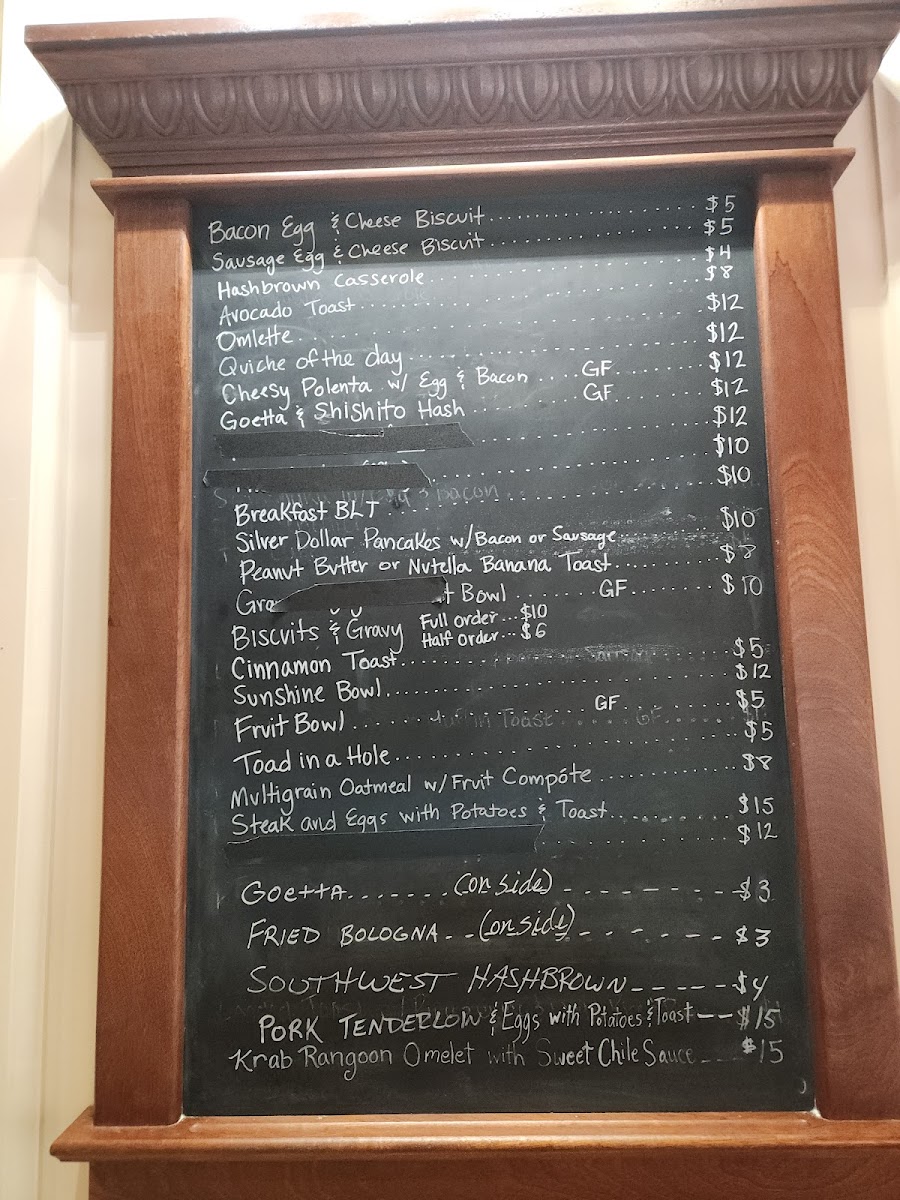 Bacon Egg & Cheese Biscuit.......................... $5
Sausage Egg & Cheese Biscuit.......................... $5
Hashbrown Casserole.......................... $4
Avocado Toast.......................... $8
Omlette.......................... $12
Quiche of the day.......................... $12
Cheesy Polenta w/ Egg & Bacon .... GF .......... $12
Goetta & Shishito Hash .......... GF .......... $12
.......................... $12
.......................... $10
Breakfast BLT .......................... $10
Silver Dollar Pancakes w/Bacon or Sausage.......... $10
Peanut Butter or Nutella Banana Toast.......... $8
Gra t Bowl .......... GF .......... $10
Biscuits & Gravy Full order...$10
Half order...$6
Cinnamon Toast.......................... $5
Sunshine Bowl.......................... $12
Fruit Bowl .......... GF .......... $5
Toad in a Hole.......................... $5
Multigrain Oatmeal w/Fruit Compóte .......... $8
Steak and Eggs with Potatoes & Toast.......... $15
.......... $12
Goetta....... (on side) --------- $3
FRIED BOLOGNA -- (on side) ------ $3
SOUTHWEST HASHBROWN ------ $4
PORK TENDERLOIN & Eggs with Potatoes & Toast -- $15
Krab Rangoon Omelet with Sweet Chile Sauce --- $15